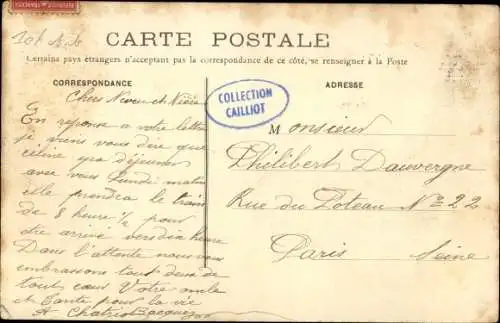 CARTE POSTALE
Certains pays étrangers n'acceptant pas la correspondance de ce côté, se renseigner à la Poste
CORRESPONDANCE
ADRESSE
COLLECTION
CAILLIOT
Chers Neveu et Nièce
En reponse a votre lettre
je viens vous dire que
Céline ira déjeuner
avec vous Lundi matin
elle prendra le train
de 8 heure ½ pour
être arrivé vers dix heure
Dans l'attente nous vous
embrassons tout deux de
tout cœur Votre oncle
et Tante pour la vie
A Chatriot
Monsieur
Philibert Dauvergne
Rue du Poteau No 22
Paris Seine